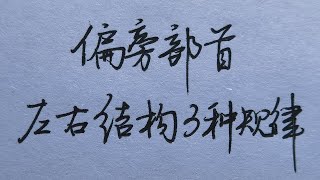 偏旁部首
左右结构3种规律